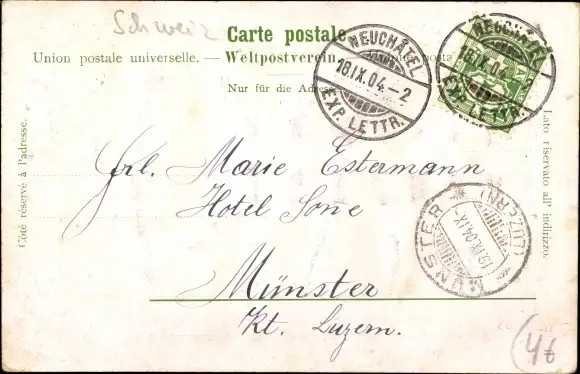 Schweiz
Carte postale.
Union postale universelle. — Weltpostverein. posta
Nur für die Adresse
NEUCHÂTEL
18.IX.04.-2
EXP. LETTR.
NEUCHÂTEL
18.IX.04
EXP. LETTR.
Côté réservé à l'adresse.
Lato riservato all' indirizzo.
Frl. Marie Estermann
Hotel Sonne
Münster
Kt. Luzern.
MÜNSTER (LUZERN)
19.IX.04.IX-